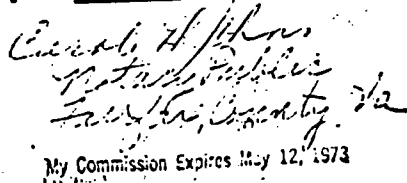 Carol H. Johns
Notary Public
County, Va
My Commission Expires May 12, 1973